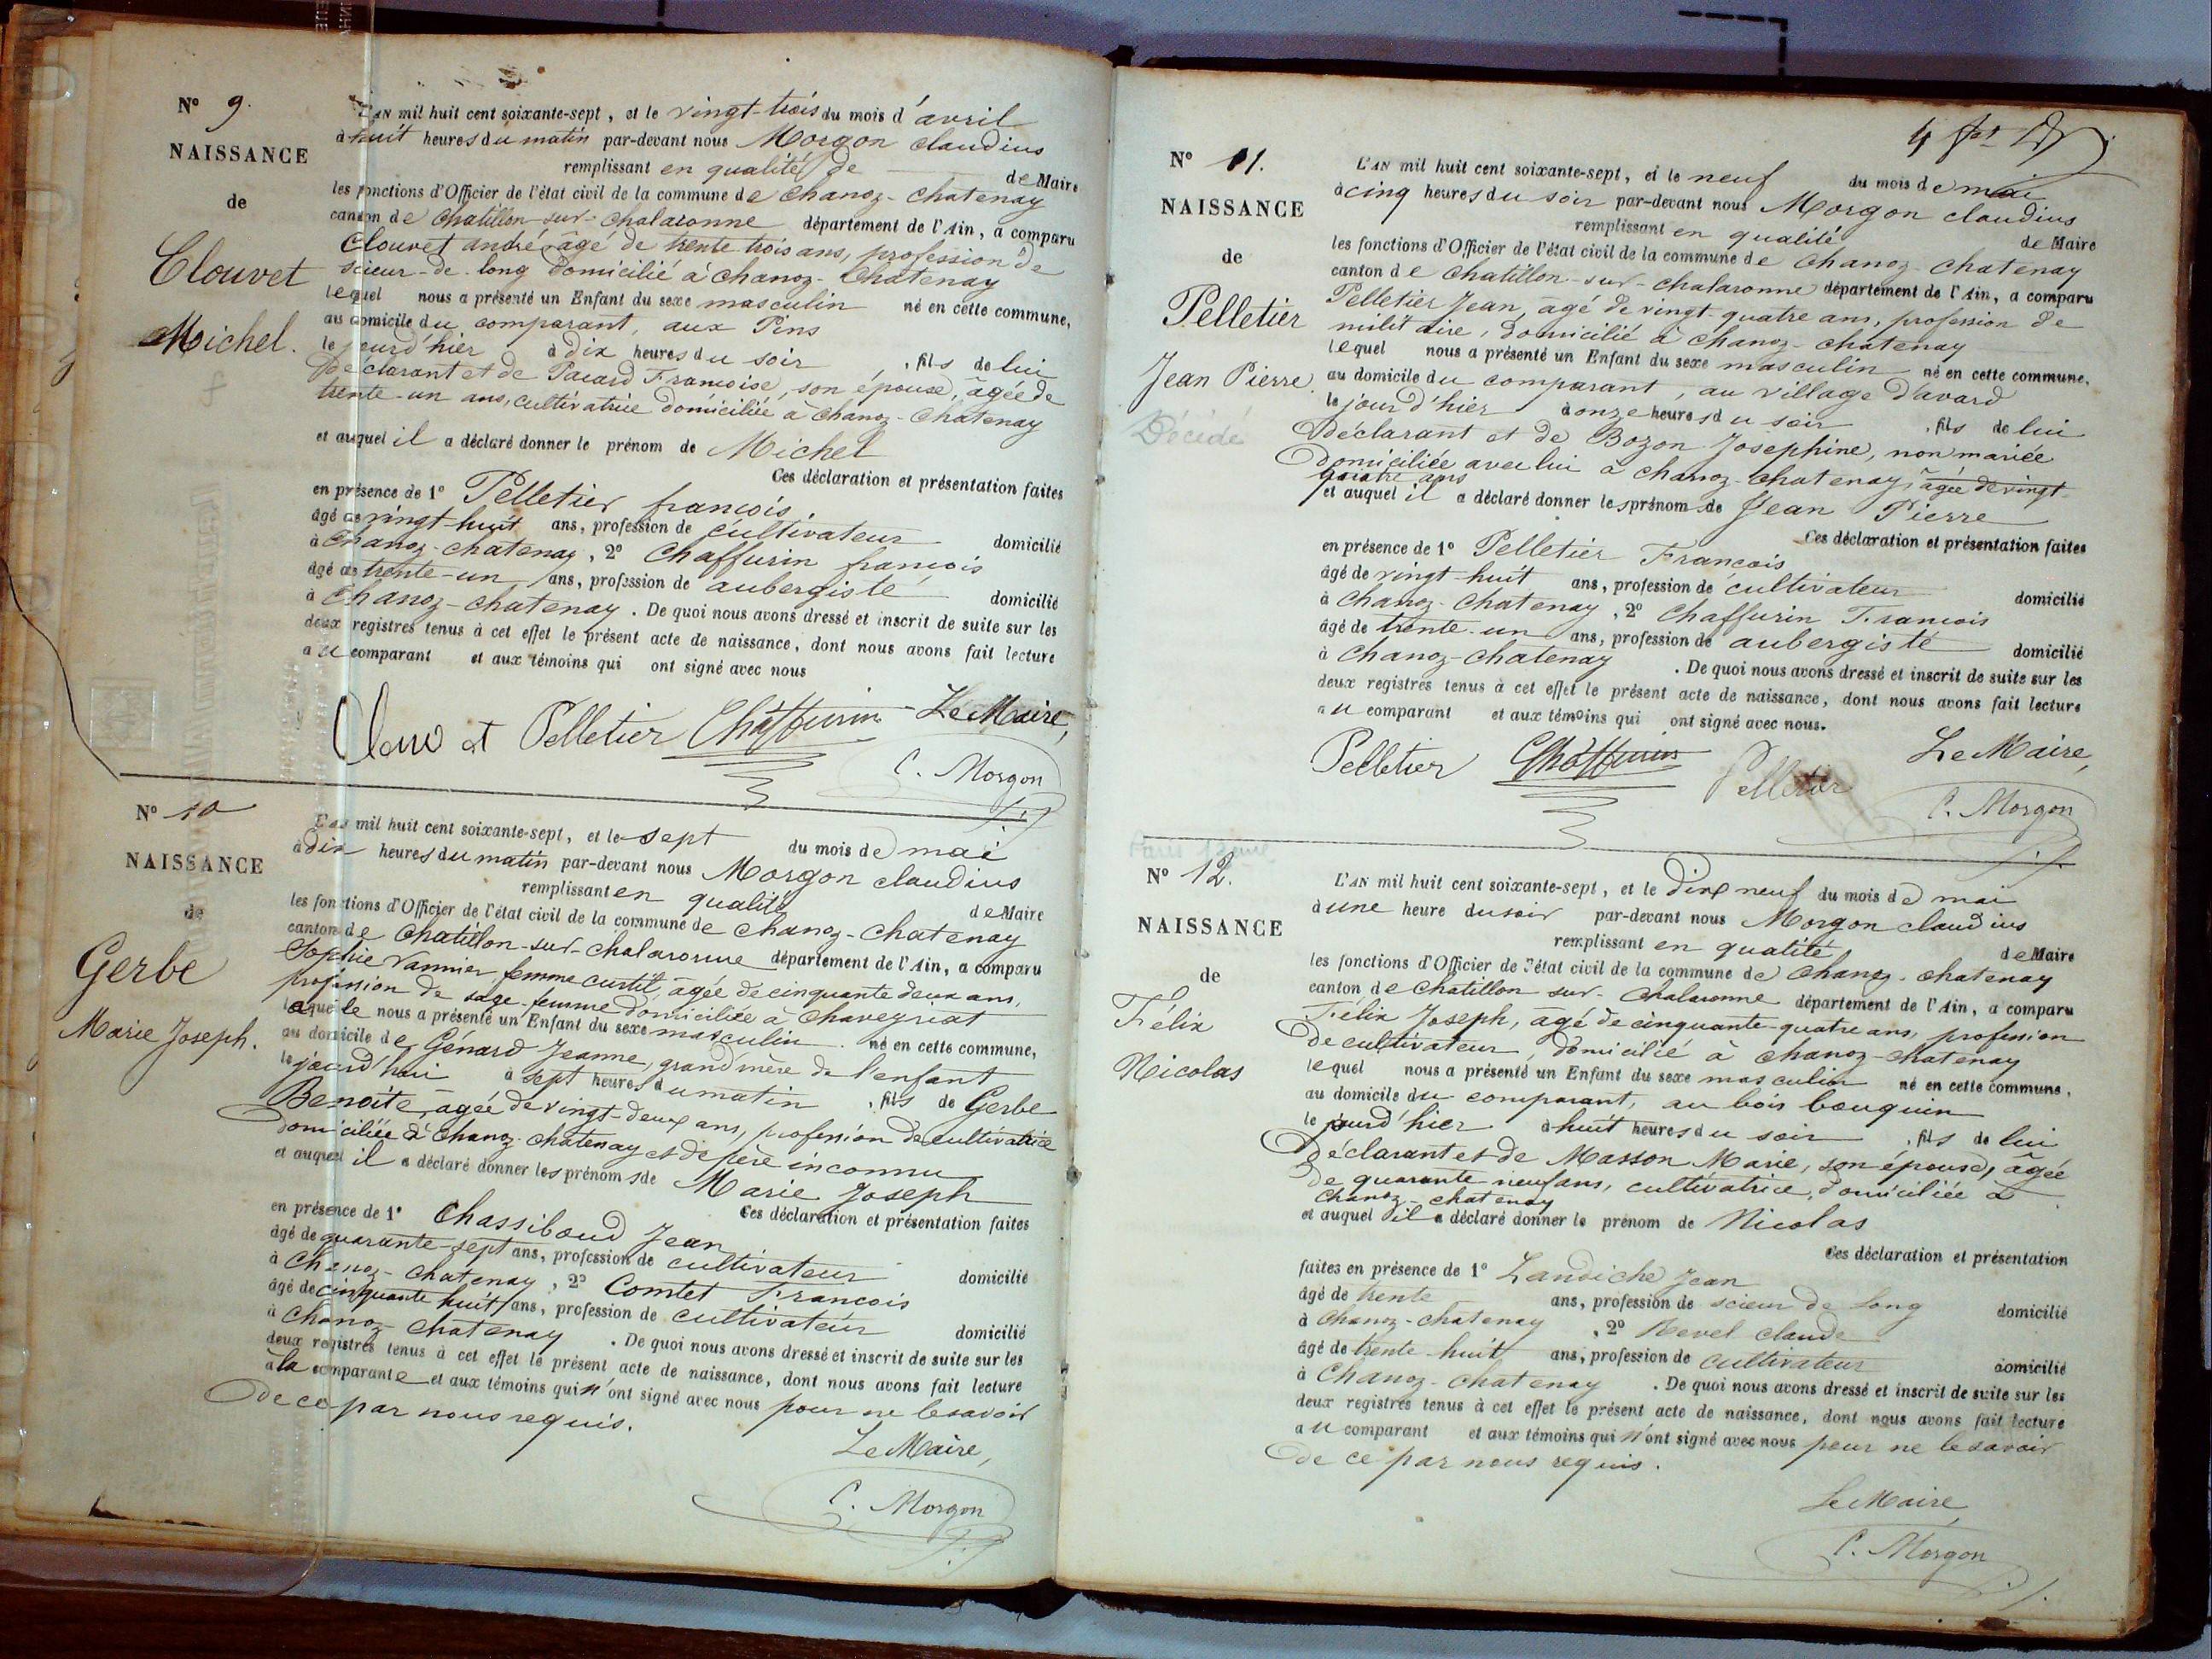 N° 9.
NAISSANCE
de
Clouvet
Michel.
L'AN mil huit cent soixante-sept, et le vingt-trois du mois d'avril
à huit heures du matin par-devant nous Morgon claudius
remplissant en qualité de de Maire
les fonctions d'Officier de l'état civil de la commune de Chanoz-Chatenay
canton de Chatillon-sur-Chalaronne département de l'Ain, a comparu
Clouvet andré âgé de trente trois ans, profession de
scieur-de-long domicilié à Chanoz-Chatenay
lequel nous a présenté un Enfant du sexe masculin né en cette commune,
au domicile du comparant, aux Pins
le jourd'hier à dix heures du soir, fils de lui
Déclarant et de Pacard Francoise, son épouse, âgée de
trente-un ans, cultivatrice domiciliée à Chanoz-Chatenay
et auquel il a déclaré donner le prénom de Michel
Ces déclaration et présentation faites
en présence de 1° Pelletier francois
âgé de vingt huit ans, profession de cultivateur domicilié
à Chanoz-chatenay, 2° Chaffurin francois
âgé de trente-un ans, profession de aubergiste domicilié
à Chanoz-chatenay. De quoi nous avons dressé et inscrit de suite sur les
deux registres tenus à cet effet le présent acte de naissance, dont nous avons fait lecture
au comparant et aux témoins qui ont signé avec nous
Clouvet Pelletier Chaffurin Le Maire,
C. Morgon
N° 10
NAISSANCE
de
Gerbe
Marie Joseph.
L'AN mil huit cent soixante-sept, et le sept du mois de mai
à dix heures du matin par-devant nous Morgon claudius
remplissant en qualité de Maire
les fonctions d'Officier de l'état civil de la commune de Chanoz-Chatenay
canton de Chatillon-sur-chalaronne département de l'Ain, a comparu
Sophie Vannier femme curtil, âgée de cinquante deux ans,
profession de sage-femme domiciliée à Chaveyriat
laquelle nous a présenté un Enfant du sexe masculin né en cette commune,
au domicile de Génard Jeanne, grand'mère de l'enfant
le jourd'hui à sept heures du matin, fils de Gerbe
Benoite, âgée de vingt-deux ans, profession de cultivatrice
domiciliée à Chanoz-chatenay et de père inconnu
et auquel il a déclaré donner les prénoms de Marie Joseph
Ces déclaration et présentation faites
en présence de 1° Chassiboud Jean
âgé de quarante-sept ans, profession de cultivateur domicilié
à Chanoz-Chatenay, 2° Comtet Francois
âgé de cinquante huit ans, profession de cultivateur domicilié
à Chanoz-Chatenay. De quoi nous avons dressé et inscrit de suite sur les
deux registres tenus à cet effet le présent acte de naissance, dont nous avons fait lecture
à la comparante et aux témoins qui n'ont signé avec nous pour ne le savoir
de ce par nous requis.
Le Maire,
C. Morgon
4
N° 11.
NAISSANCE
de
Pelletier
Jean Pierre
Décédé
L'AN mil huit cent soixante-sept, et le neuf du mois de mai
à cinq heures du soir par-devant nous Morgon claudius
remplissant en qualité de Maire
les fonctions d'Officier de l'état civil de la commune de Chanoz-Chatenay
canton de Chatillon-sur-chalaronne département de l'Ain, a comparu
Pelletier Jean, âgé de vingt-quatre ans, profession de
militaire, domicilié à Chanoz-chatenay
lequel nous a présenté un Enfant du sexe masculin né en cette commune,
au domicile du comparant, au village d'avard
le jourd'hier à onze heures du soir, fils de lui
Déclarant et de Bozon Josephine, non mariée
Domiciliée avec lui à Chanoz-chatenay, âgée de vingt
quatre ans
et auquel il a déclaré donner les prénom de Jean Pierre
Ces déclaration et présentation faites
en présence de 1° Pelletier Francois
âgé de vingt huit ans, profession de cultivateur domicilié
à Chanoz-Chatenay, 2° Chaffurin Francois
âgé de trente-un ans, profession de aubergiste domicilié
à Chanoz-chatenay. De quoi nous avons dressé et inscrit de suite sur les
deux registres tenus à cet effet le présent acte de naissance, dont nous avons fait lecture
au comparant et aux témoins qui ont signé avec nous.
Pelletier Chaffurin Pelletier Le Maire,
C. Morgon
N° 12.
NAISSANCE
de
Félix
Nicolas
L'AN mil huit cent soixante-sept, et le dix neuf du mois de mai
à une heure du soir par-devant nous Morgon claudius
remplissant en qualité de Maire
les fonctions d'Officier de l'état civil de la commune de Chanoz-chatenay
canton de Chatillon sur-Chalaronne département de l'Ain, a comparu
Félix Joseph, âgé de cinquante-quatre ans, profession
de cultivateur, domicilié à Chanoz-chatenay
lequel nous a présenté un Enfant du sexe masculin né en cette commune,
au domicile du comparant, au bois bouquin
le jourd'hier à huit heures du soir, fils de lui
Déclarant et de Masson Marie, son épouse, âgée
de quarante-neuf ans, cultivatrice, domiciliée à
Chanoz-chatenay
et auquel il a déclaré donner le prénom de Nicolas
Ces déclaration et présentation
faites en présence de 1° Landiche Jean
âgé de trente ans, profession de scieur de long domicilié
à Chanoz-chatenay, 2° Revel claude
âgé de trente-huit ans, profession de cultivateur domicilié
à Chanoz-Chatenay. De quoi nous avons dressé et inscrit de suite sur les
deux registres tenus à cet effet le présent acte de naissance, dont nous avons fait lecture
au comparant et aux témoins qui n'ont signé avec nous pour ne le savoir
de ce par nous requis.
Le Maire,
C. Morgon